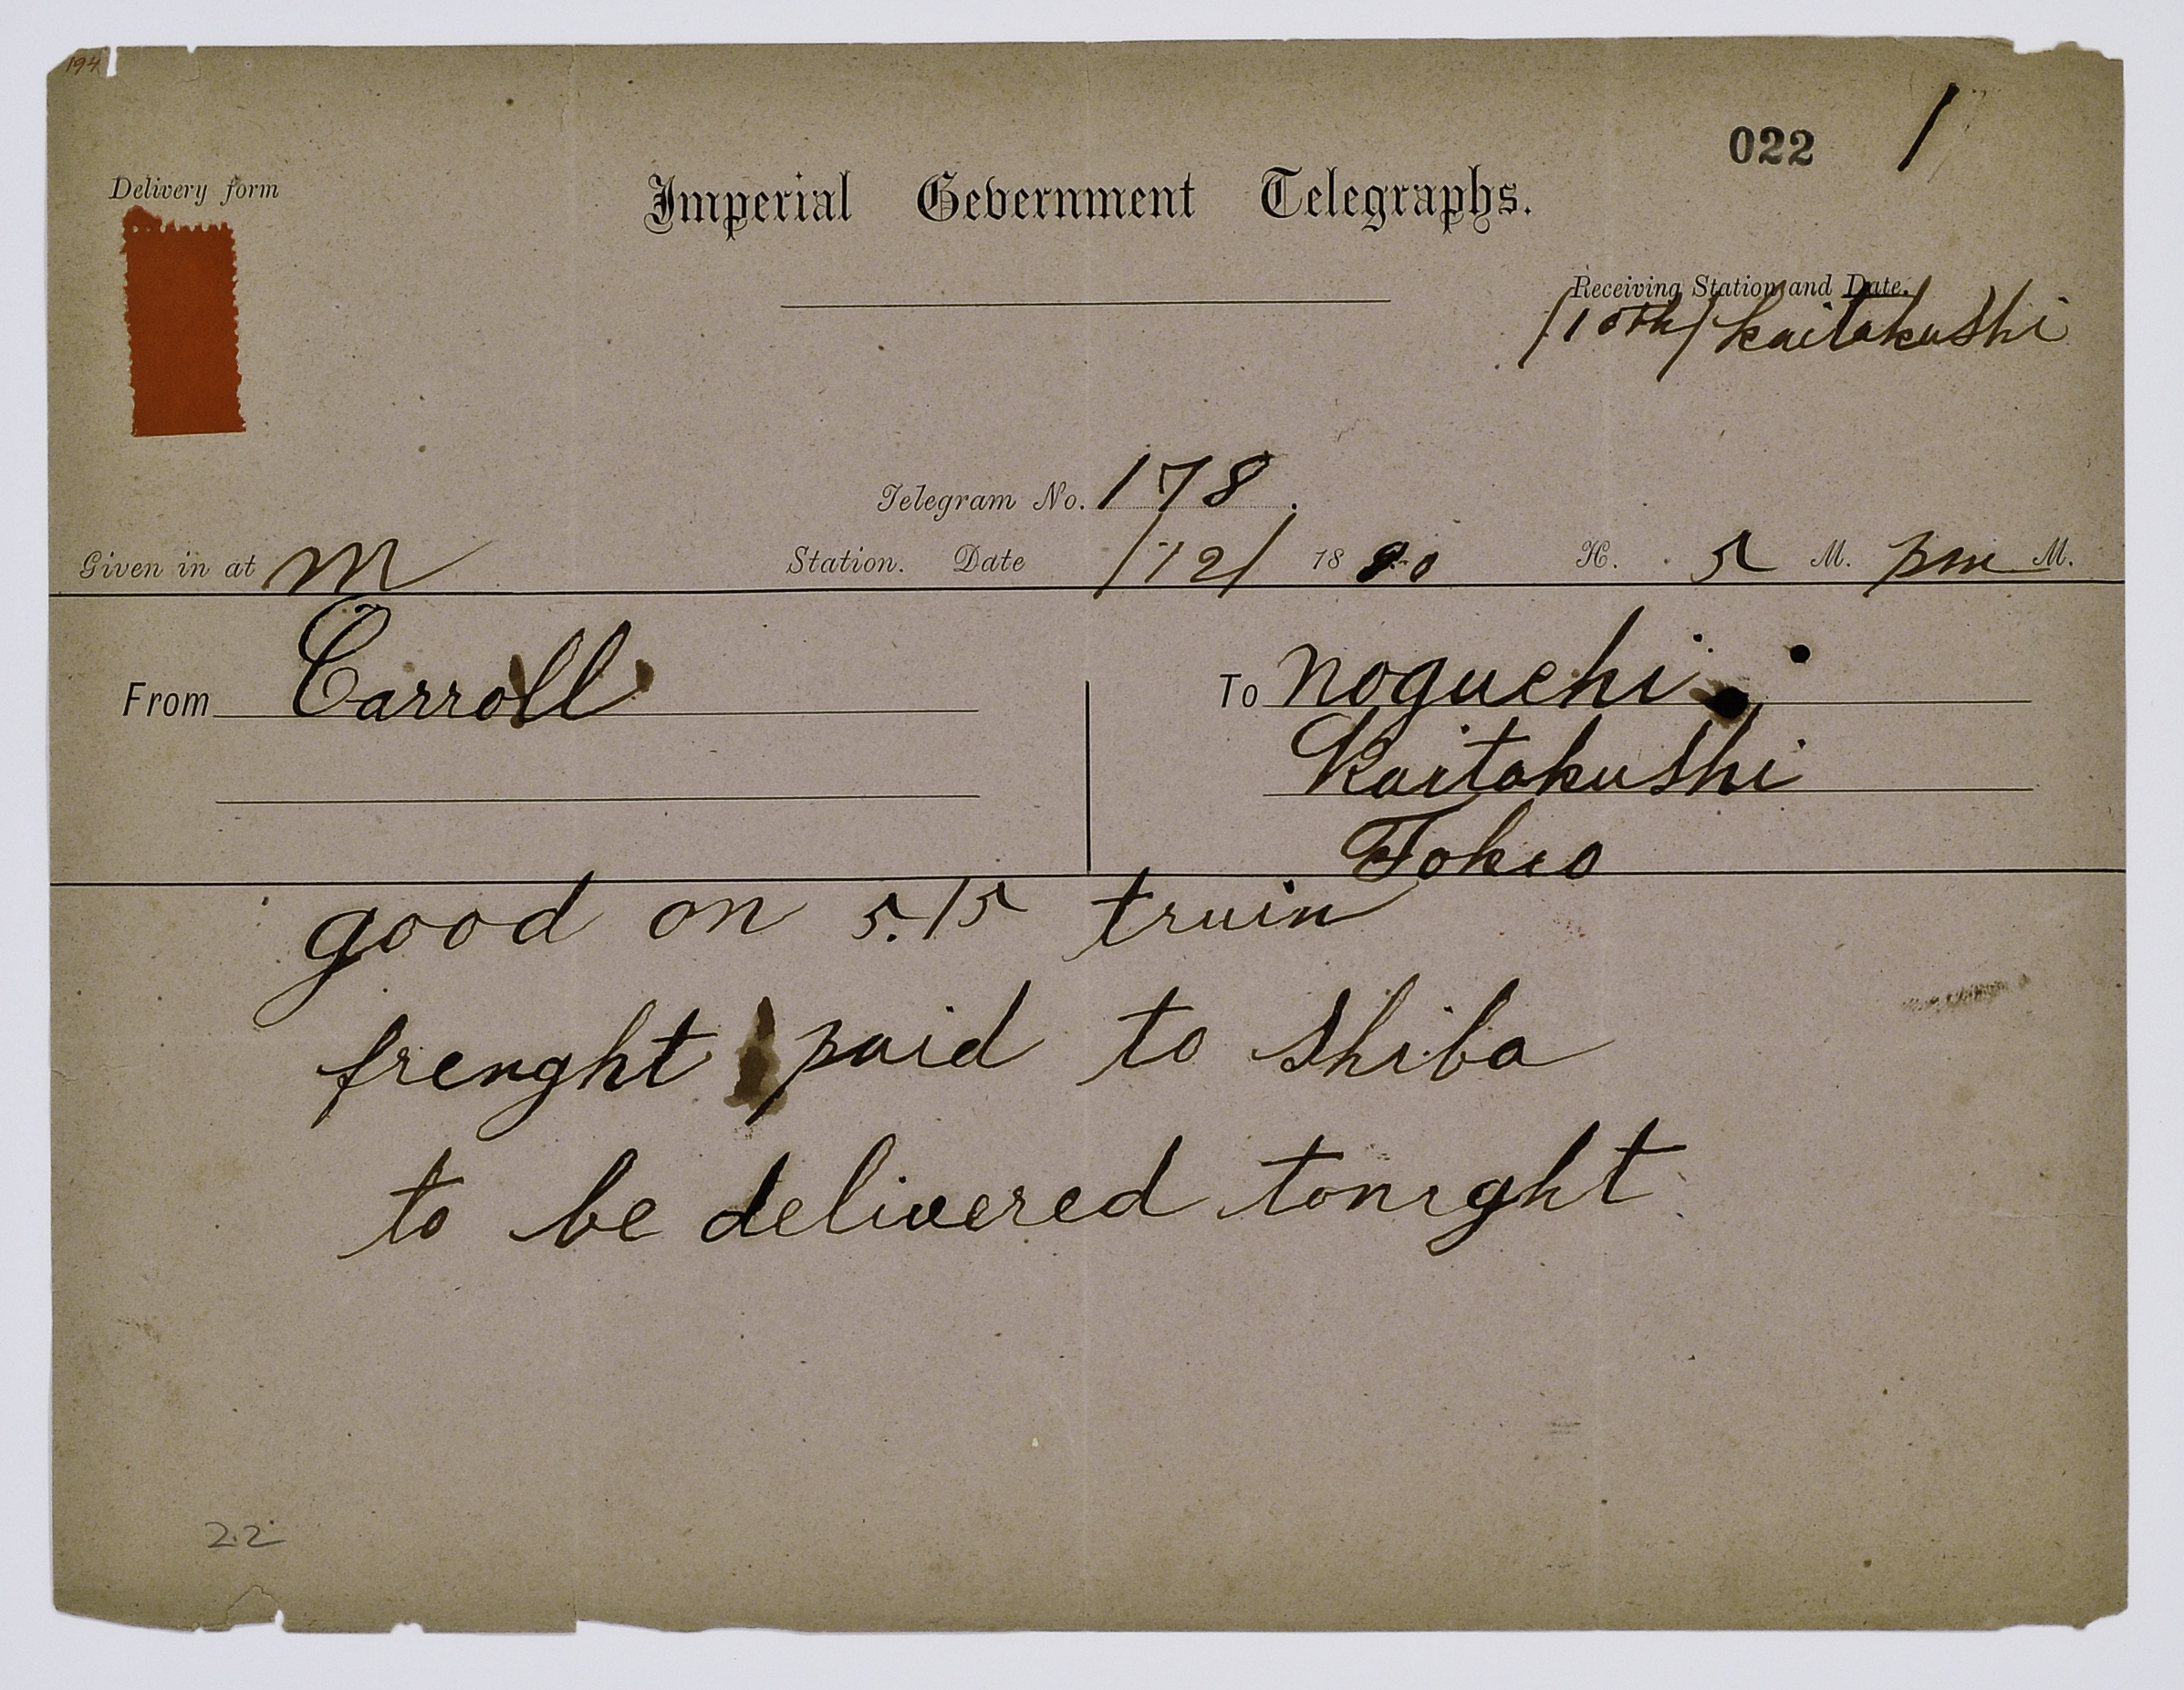 194
022 1
Delivery form
Imperial Gevernment Telegraphs.
Receiving Station and Date.
/10th/ Kaitakushi
Telegram No. 178.
Given in at m Station. Date /12/ 1880 H. 5 M. pm M.
From Carroll
To noguchi
Kaitakushi
Tokio
good on 5.15 train
frenght paid to Shiba
to be delivered tonight
22